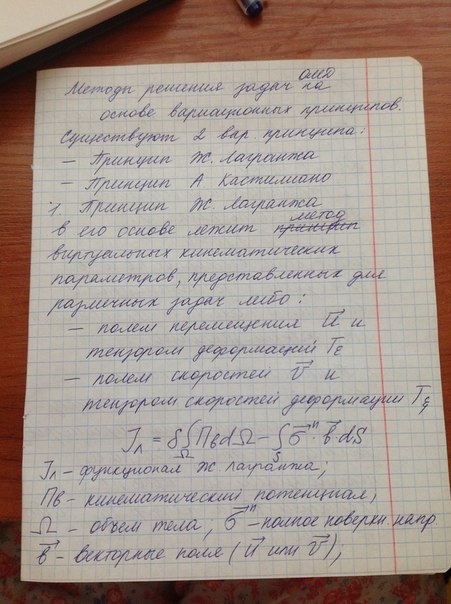 Методы решения задач ОМД на
основе вариационных принципов.
Существуют 2 вар. принципа:
– Принцип Ж. Лагранжа
– Принцип А. Кастилиано
1. Принцип Ж. Лагранжа
в его основе лежит метод
виртуальных кинематических
параметров, представленных для
различных задач либо:
– полем перемещения u⃗ и
тензором деформаций Tε
– полем скоростей v⃗ и
тензором скоростей деформации Tξ
Jл = δ∫Ω Пв dΩ – ∫S σ⃗ⁿ · b⃗ · dS
Jл – функционал Ж Лагранжа;
Пв – кинематический потенциал,
Ω – объем тела; σ⃗ⁿ – полное поверхн. напр.
b⃗ – векторные поля (u⃗ или v⃗);